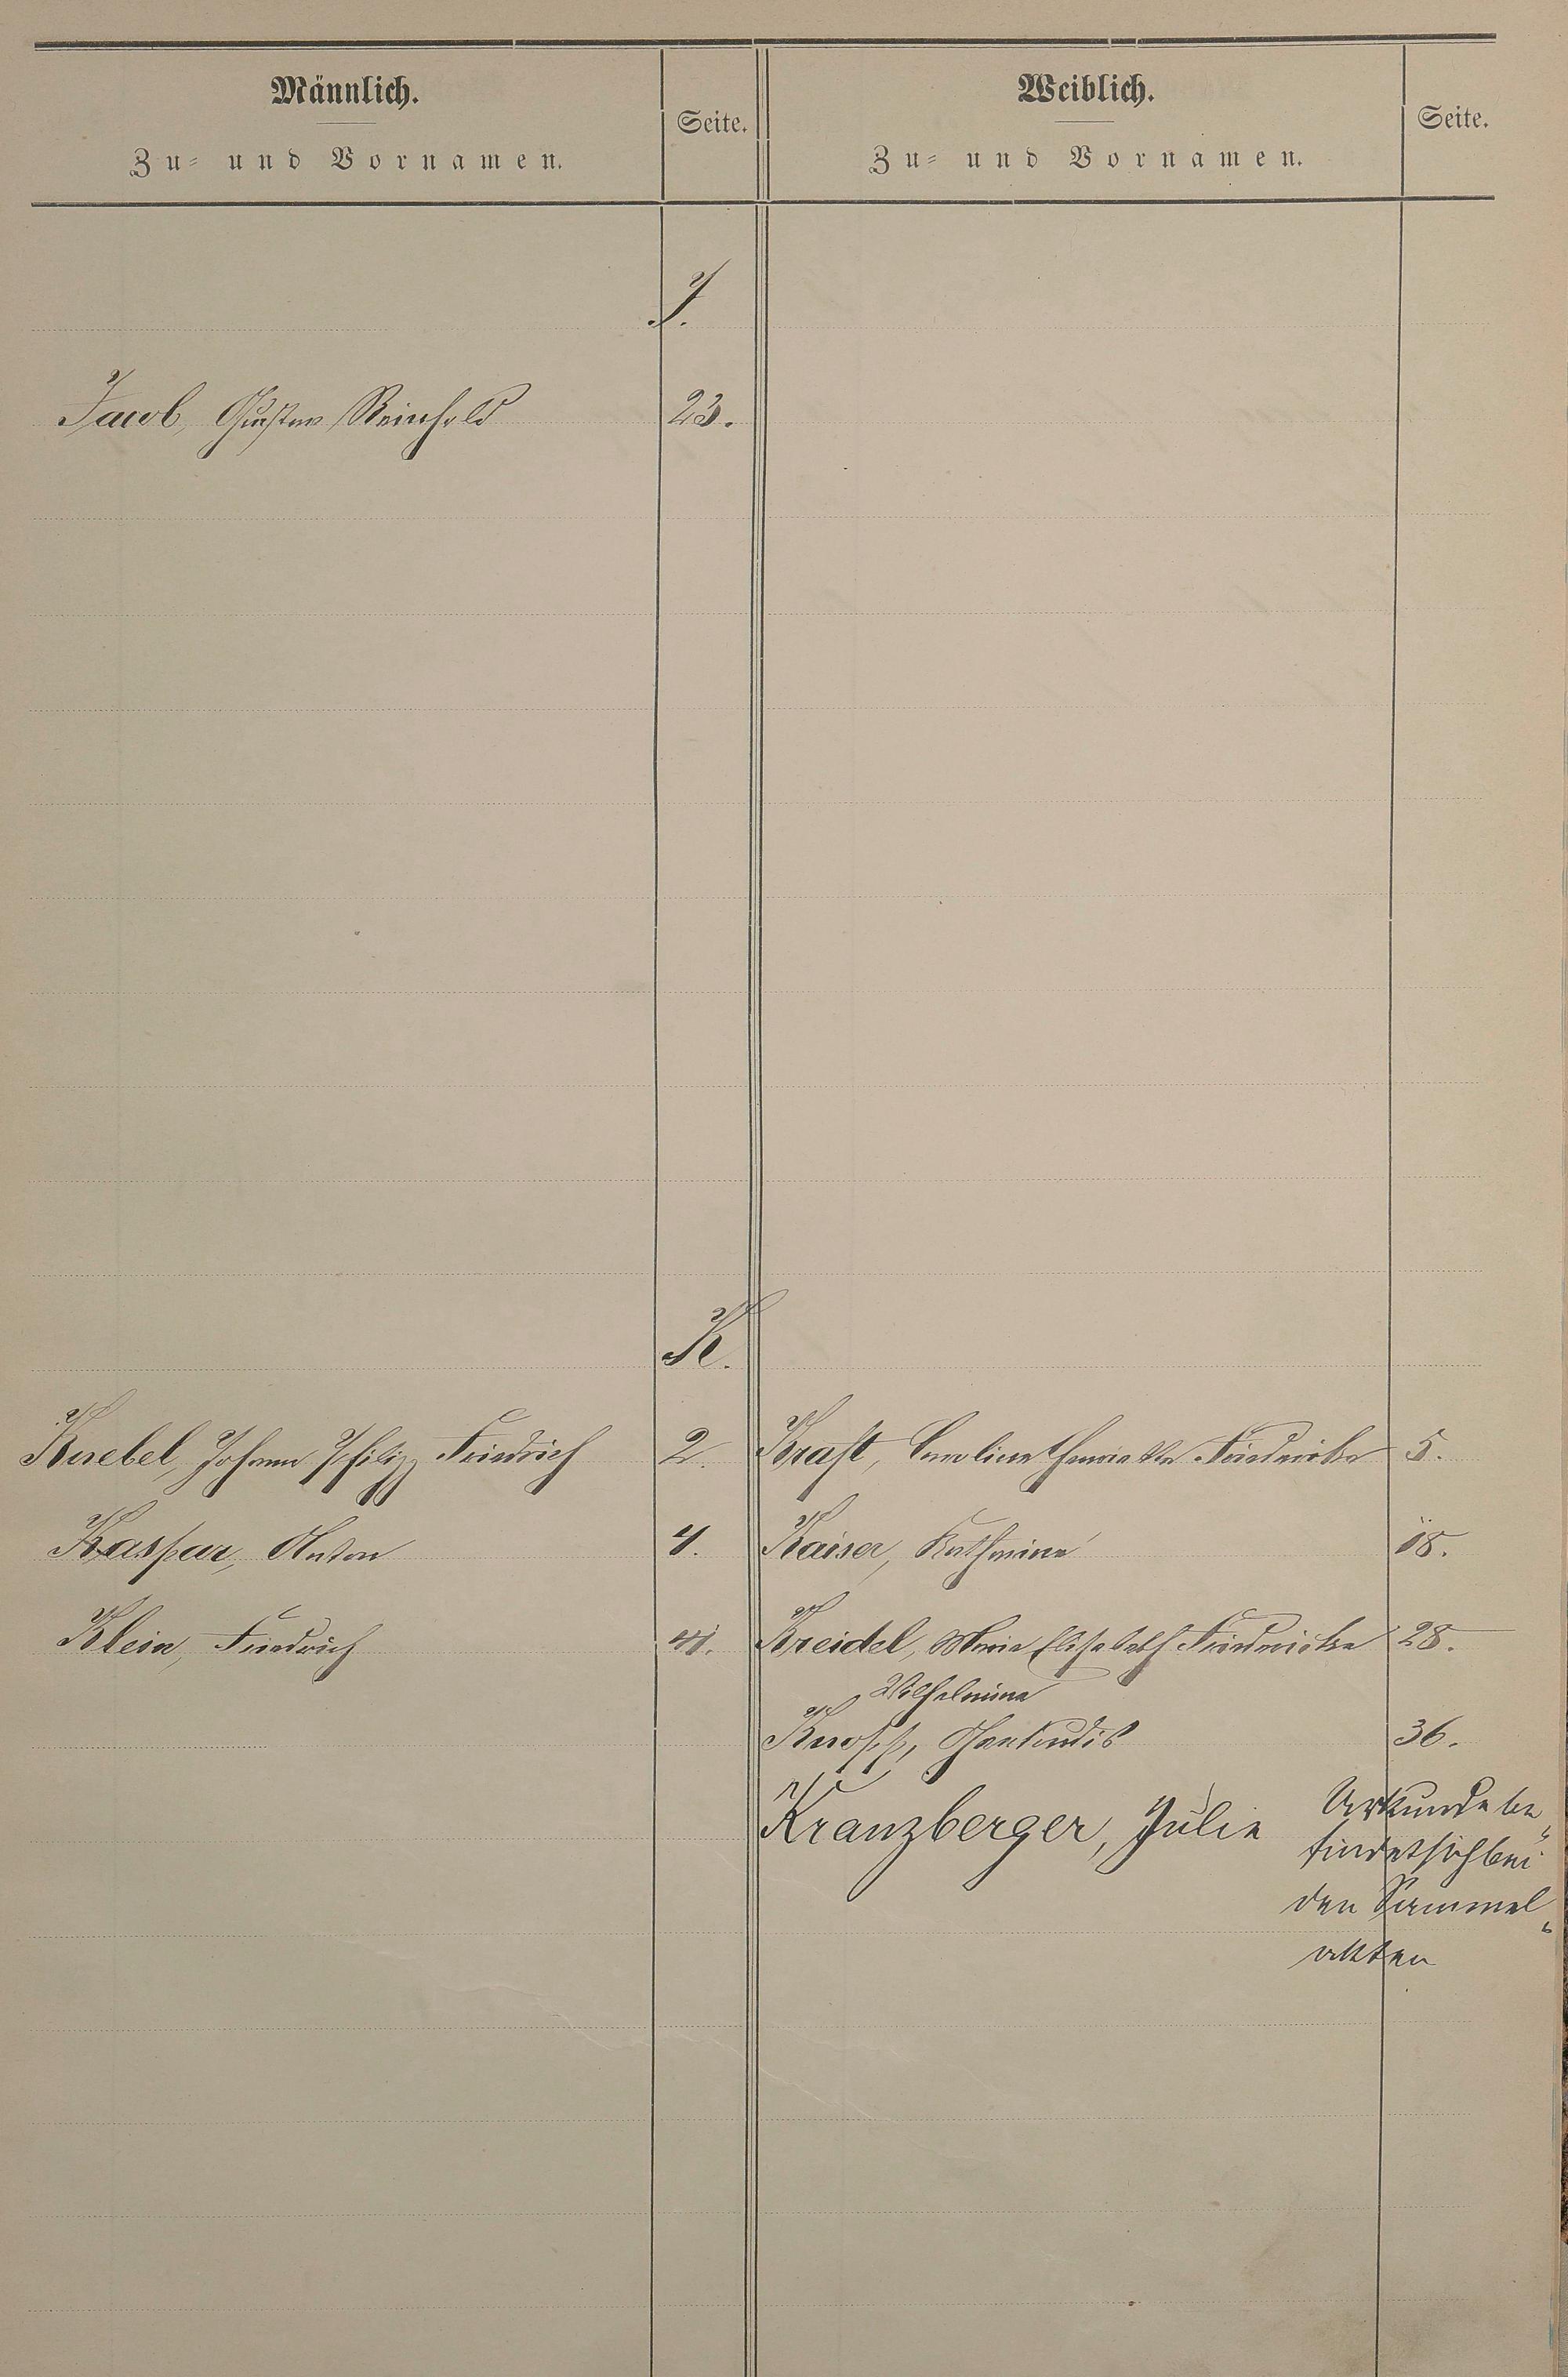 Männlich.
Zu- und Vornamen.
Seite.
Weiblich.
Zu- und Vornamen.
Seite.
J.
Jacob, Gustav Reinhold 23.
K.
Knebel, Johann Philipp Friedrich 2.
Kraft, Caroline Henriette Friedericke 5.
Kaspar, Anton 4.
Kaiser, Katharina 18.
Klein, Friedrich 41.
Kreidel, Marie Elisabeth Friedericke 28.
Wilhelmine
Knopp, 36.
Kranzberger, Julie
Urkunde be„
findet sich bei
den Sammel„
akten